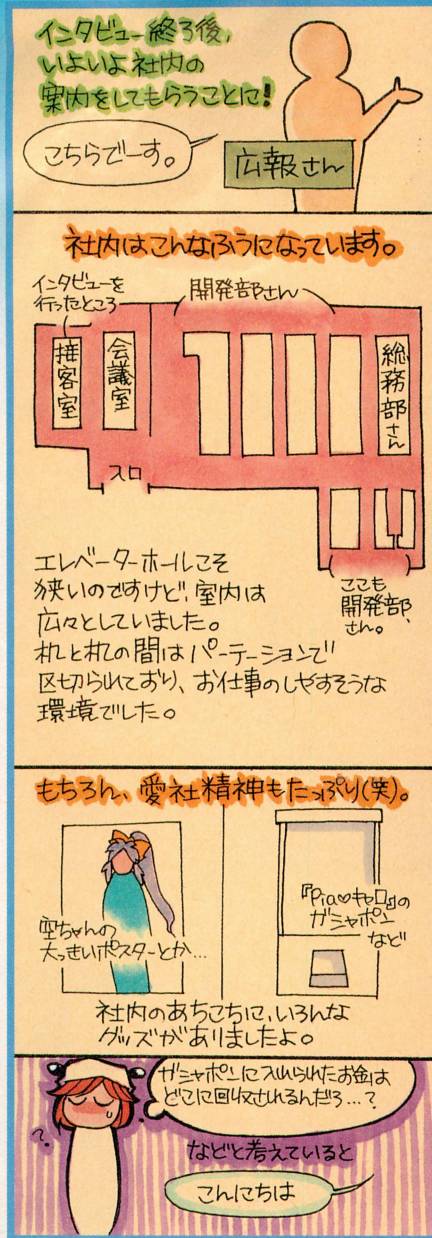 インタビュー終了後、
いよいよ社内の
案内をしてもらうことに!
こちらでーす。
広報さん
社内はこんなふうになっています。
インタビューを
行ったところ
開発部さん
接客室
会議室
総務部さん
入口
ここも
開発部
さん。
エレベーターホールこそ
狭いのですけど、室内は
広々としていました。
机と机の間はパーテーションで
区切られており、お仕事のしやすそうな
環境でした。
もちろん、愛社精神もたっぷり(笑)。
空ちゃんの
大っきいポスターとか…
『Pia♡キャロ』の
ガシャポン
など
社内のあちこちに、いろんな
グッズがありましたよ。
ガシャポンに入れられたお金は
どこに回収されるんだろ…?
?
などと考えていると
こんにちは